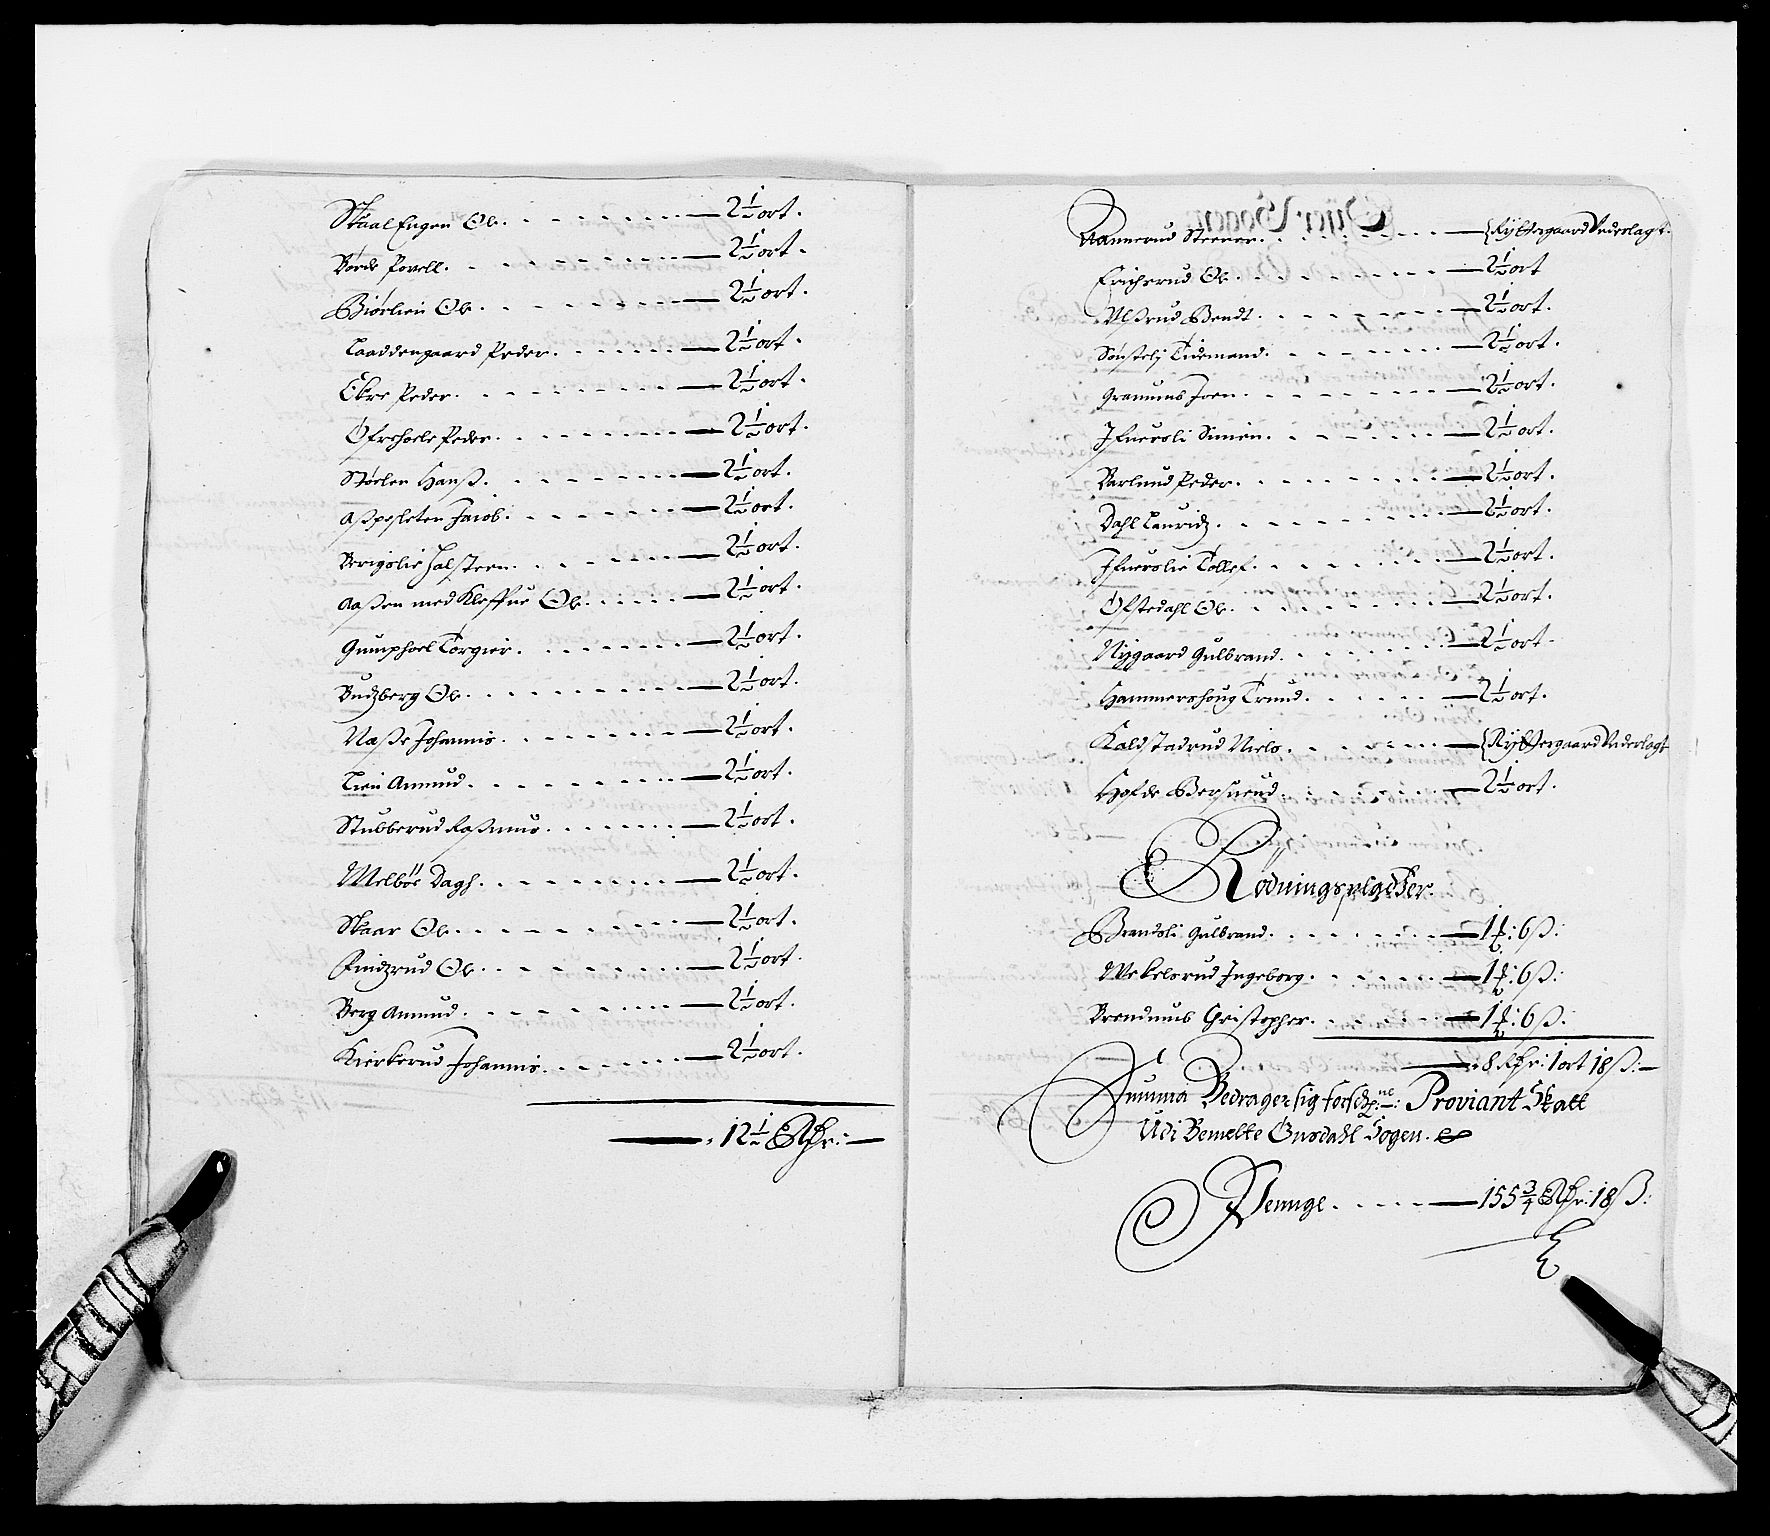 Skaalengen Ole. 2½ ort.
Børde Povell. 2½ ort.
Biørlien Ole. 2½ ort.
Laaddengaard Peder. 2½ ort.
Ekre Peder. 2½ ort.
Ofrehoele Peder. 2½ ort.
Støelen Hanß. 2½ ort.
Aßpesleten Jacob. 2½ ort.
Bergslie Halsteen. 2½ ort.
Aaßen med Kleffue Ole. 2½ ort.
Gumphoel Torgier. 2½ ort.
Budzberg Ole. 2½ ort.
Naße Johannis. 2½ ort.
Lien Anmund. 2½ ort.
Stubberud Raßmus. 2½ ort.
Melbøe Dagh. 2½ ort.
Skaar Ole. 2½ ort.
Findzrud Ole. 2½ ort.
Berg Anmund. 2½ ort.
Kierkerud Johannis. 2½ ort.
12½ Rdr:
Rannerud Steener. Ryttergaard Vederlagt.
Erichsrud Ole. 2½ ort
Ulßrud Bendt. 2½ ort.
Sønstelj Tidemand. 2½ ort.
Gramums Joen. 2½ ort.
Ifuersli Simen. 2½ ort.
Barlund Peder. 2½ ort.
Dahl Lauridz. 2½ ort.
Ifuerslie Tollef. 2½ ort.
Ofstedahl Ole. 2½ ort.
Nygaard Gulbrand. 2½ ort.
Hammershoug Trund. 2½ ort.
Kaldstadrud Niels. Ryttergaard Vederlagt
Hofde Bersuend. 2½ ort.
Rødningspladtzer.
Brendsli Gulbrand. 1 ℔: 6 ß:
Mekelsrud Ingeborg. 1 ℔: 6 ß:
Brendums Christopher. 1 ℔: 6 ß:
8 Rdr: 1 ort 18 ß:
Summa Bedrager sig forschr:ne: Proviant Skatt
Udi Bemelte Gusdahl Sogen.
Pennge. 155¾ Rdr: 18 ß: